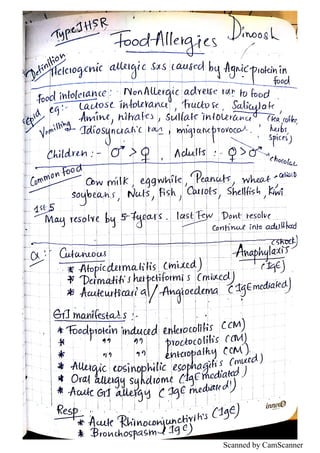 Type I HSR
Food Allergies Dinoosh
Definition
Heterogenic allergic sxs caused by Agnic protein in food
Food intolerance : Non Allergic adverse rxn to food
Epid eg:- Lactose intolerance, fructose, Salicylate,
Vomiting Amine, nitrates, Sulfate intolerance (tea, coffee, herbs, spices)
Idiosyncratic rxn, migraine provocat.. chocolate
Children :- ♂ > ♀ Adults :- ♀ > ♂
Common food
Cow milk, eggwhite, Peanuts, wheat
soybeans, Nuts, Fish, Carrots, Shellfish, Kiwi
1st 5
May resolve by 5-7 years. last Few Dont resolve
continue into adulthood
Cutaneous Anaphylaxis (shock)
* Atopic dermatitis (mixed) (IgE)
* Dermatitis herpetiformis (mixed)
* Acute urticaria / Angioedema (IgE mediated)
GIT manifestats :-
* Food protein induced enterocolitis (CM)
* " " proctocolitis (CM)
* " " enteropathy (CM)
* Allergic eosinophilic esophagitis (mixed)
* Oral allergy syndrome (IgE mediated)
* Acute GIT allergy (IgE mediated)
Resp
* Acute Rhinoconjunctivitis (IgE)
* Bronchospasm (IgE)
Scanned by CamScanner